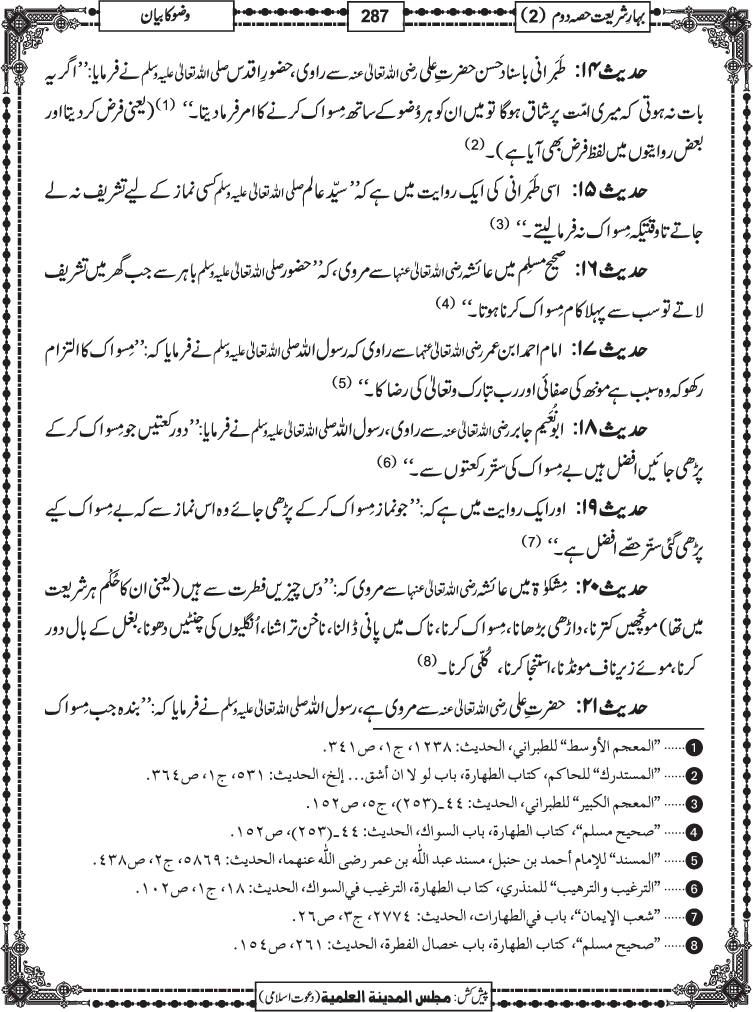 بہارِ شریعت حصہ دوم (2)
287
وضو کا بیان
حدیث ۱۴: طَبَرانی باسناد حسن حضرتِ علی رضی اللہ تعالیٰ عنہ سے راوی، حضورِ اقدس صلی اللہ تعالیٰ علیہ وسلم نے فرمایا: ’’اگر یہ
بات نہ ہوتی کہ میری امّت پر شاق ہوگا تو میں ان کو ہر وُضو کے ساتھ مِسواک کرنے کا امر فرما دیتا۔‘‘ (1) (یعنی فرض کر دیتا اور
بعض روایتوں میں لفظ فرض بھی آیا ہے)۔ (2)
حدیث ۱۵: اسی طَبَرانی کی ایک روایت میں ہے کہ ’’سیّد عالم صلی اللہ تعالیٰ علیہ وسلم کسی نماز کے لیے تشریف نہ لے
جاتے تا وقتیکہ مِسواک نہ فرما لیتے۔‘‘ (3)
حدیث ۱۶: صحیح مسلِم میں عائشہ رضی اللہ تعالیٰ عنہا سے مروی، کہ ’’حضور صلی اللہ تعالیٰ علیہ وسلم باہر سے جب گھر میں تشریف
لاتے تو سب سے پہلا کام مِسواک کرنا ہوتا۔‘‘ (4)
حدیث ۱۷: امام احمد ابن عمر رضی اللہ تعالیٰ عنہما سے راوی کہ رسول اللہ صلی اللہ تعالیٰ علیہ وسلم نے فرمایا کہ: ’’مِسواک کا التزام
رکھو کہ وہ سبب ہے مونھ کی صفائی اور رب تبارک و تعالیٰ کی رضا کا۔‘‘ (5)
حدیث ۱۸: ابو نُعَیم جابر رضی اللہ تعالیٰ عنہ سے راوی، رسول اللہ صلی اللہ تعالیٰ علیہ وسلم نے فرمایا: ’’دو رکعتیں جو مِسواک کر کے
پڑھی جائیں افضل ہیں بے مِسواک کی ستّر رکعتوں سے۔‘‘ (6)
حدیث ۱۹: اور ایک روایت میں ہے کہ: ’’جو نماز مِسواک کر کے پڑھی جائے وہ اس نماز سے کہ بے مِسواک کیے
پڑھی گئی ستّر حصّے افضل ہے۔‘‘ (7)
حدیث ۲۰: مِشکوٰۃ میں عائشہ رضی اللہ تعالیٰ عنہا سے مروی کہ: ’’دس چیزیں فطرت سے ہیں (یعنی ان کا حُکْم ہر شریعت
میں تھا) مونچھیں کترنا، داڑھی بڑھانا، مِسواک کرنا، ناک میں پانی ڈالنا، ناخن تراشنا، اُنگلیوں کی چنٹیں دھونا، بغل کے بال دور
کرنا، موئے زیرِ ناف مونڈنا، استنجا کرنا، کُلّی کرنا۔ (8)
حدیث ۲۱: حضرتِ علی رضی اللہ تعالیٰ عنہ سے مروی ہے، رسول اللہ صلی اللہ تعالیٰ علیہ وسلم نے فرمایا کہ: ’’بندہ جب مِسواک
1 ...... ”المعجم الأوسط“ للطبراني، الحدیث: ۱۲۳۸، ج۱، ص۳۴۱.
2 ...... ”المستدرك“ للحاکم، کتاب الطھارة، باب لو لا ان أشق... إلخ، الحدیث: ۵۳۱، ج۱، ص۳۶۴.
3 ...... ”المعجم الکبیر“ للطبراني، الحدیث: ۴۴ـ(۲۵۳)، ج۵، ص۱۵۲.
4 ...... ”صحیح مسلم“، کتاب الطھارة، باب السواك، الحدیث: ۴۴ـ(۲۵۳)، ص۱۵۲.
5 ...... ”المسند“ للإمام أحمد بن حنبل، مسند عبد اللّٰہ بن عمر رضی اللّٰہ عنھما، الحدیث: ۵۸۶۹، ج۲، ص۴۳۸.
6 ...... ”الترغیب والترھیب“ للمنذري، کتاب الطھارة، الترغیب في السواك، الحدیث: ۱۸، ج۱، ص۱۰۲.
7 ...... ”شعب الإیمان“، باب في الطھارات، الحدیث: ۲۷۷۴، ج۳، ص۲۶.
8 ...... ”صحیح مسلم“، کتاب الطھارة، باب خصال الفطرة، الحدیث: ۲۶۱، ص۱۵۴.
پیش کش: مجلس المدینة العلمیة (دعوت اسلامی)